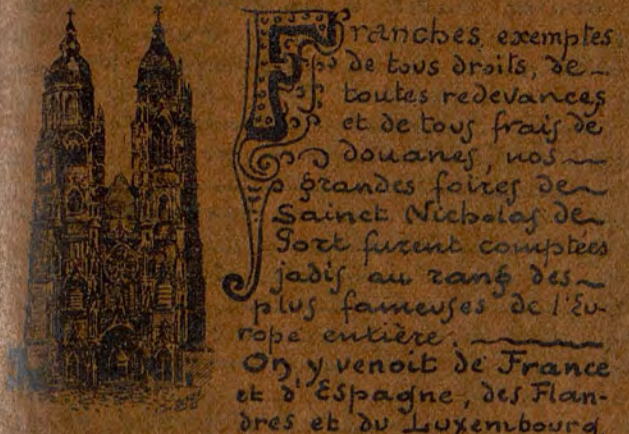 Franches, exemptes
de tous droits, de
toutes redevances
et de tous frais de
douanes, nos
grandes foires de
Sainct Nicholas de
Port furent comptées
jadis au rang des
plus fameuses de l'Eu-
rope entière.
On y venoit de France
et d'Espagne, des Flan-
dres et du Luxembourg